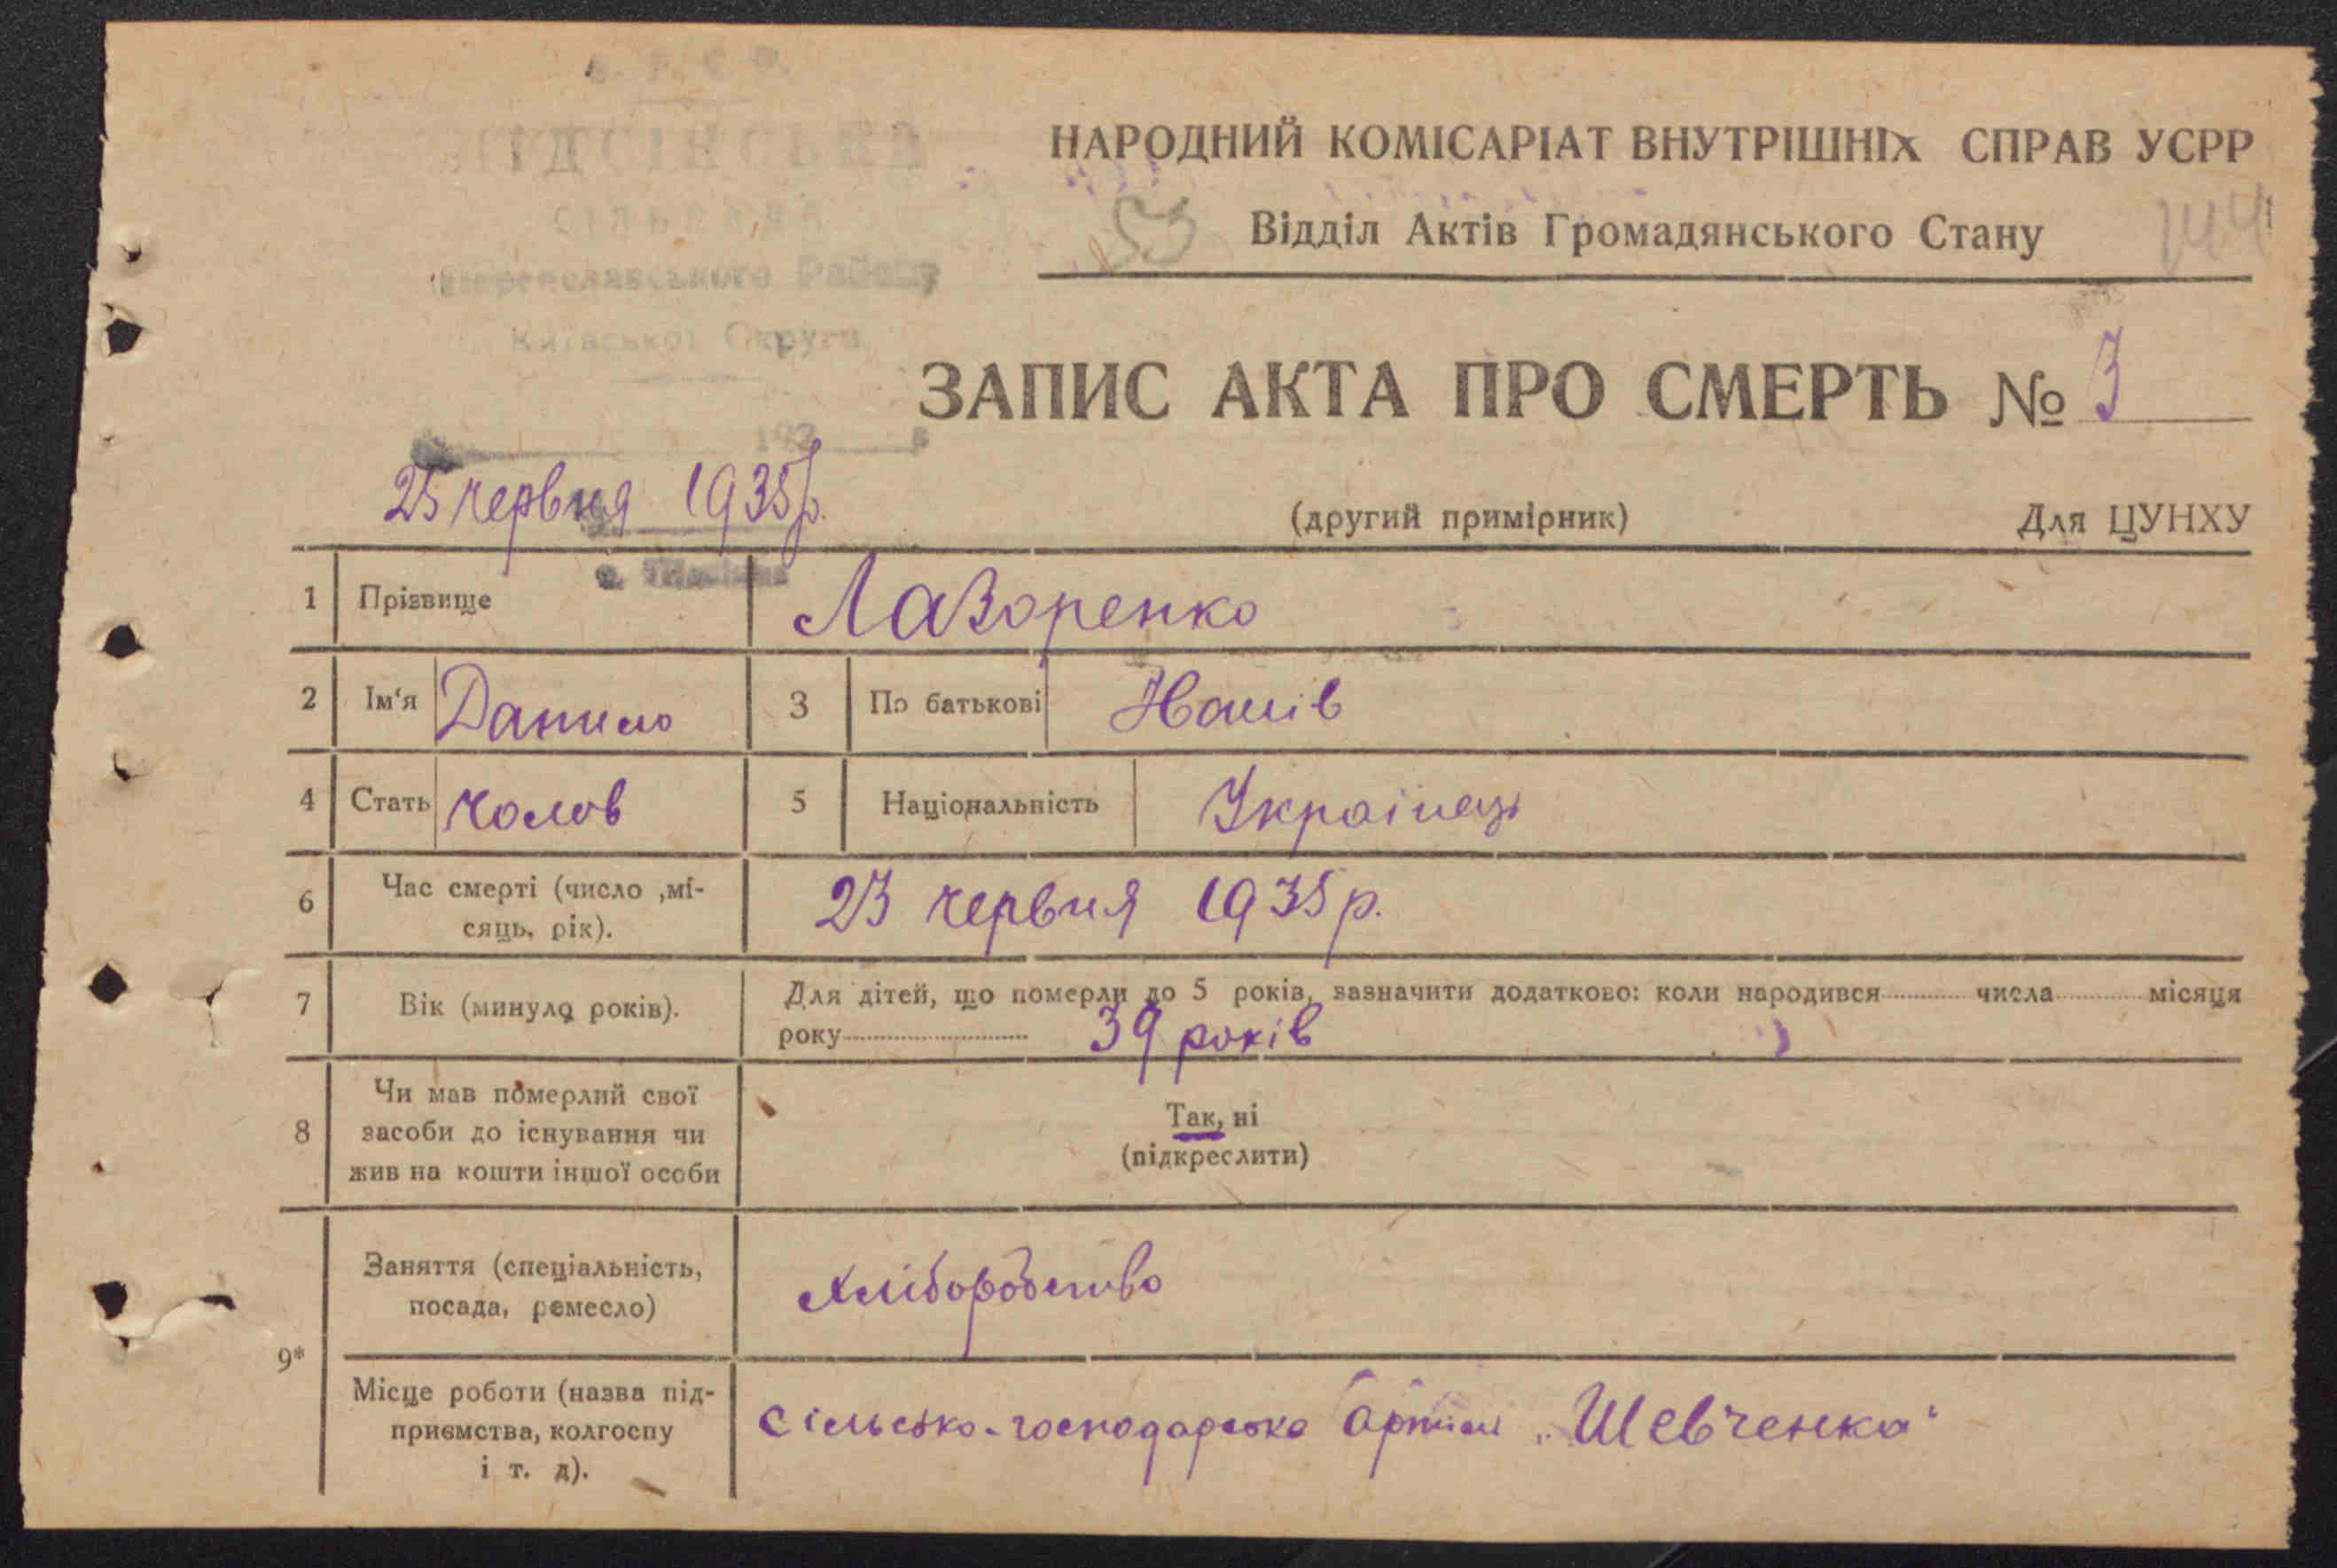 У. Р. С. Р.
ПІДСІНСЬКА
СІЛЬРАДА
Переяславського Району
Київської Округи
НАРОДНИЙ КОМІСАРІАТ ВНУТРІШНІХ СПРАВ УСРР
53
Відділ Актів Громадянського Стану
144
ЗАПИС АКТА ПРО СМЕРТЬ № 3
192 р
25 червня 1935 р.
(другий примірник)
Для ЦУНХУ
1 Прізвище Лазоренко
2 Ім'я Данило 3 По батькові
4 Стать чолов 5 Національність Українець
6 Час смерті (число ,мі-
сяць, рік).
23 червня 1935 р.
7 Вік (минуло років).
Для дітей, що померли до 5 років, зазначити додатково: коли народився числа місяця
року 39 років
8 Чи мав померлий свої
засоби до існування чи
жив на кошти іншої особи
Так, ні
(підкреслити)
9*
Заняття (спеціальність,
посада, ремесло)
Хліборобство
Місце роботи (назва під-
приємства, колгоспу
і т. д).
Сільсько-господарська Артіль „Шевченка"